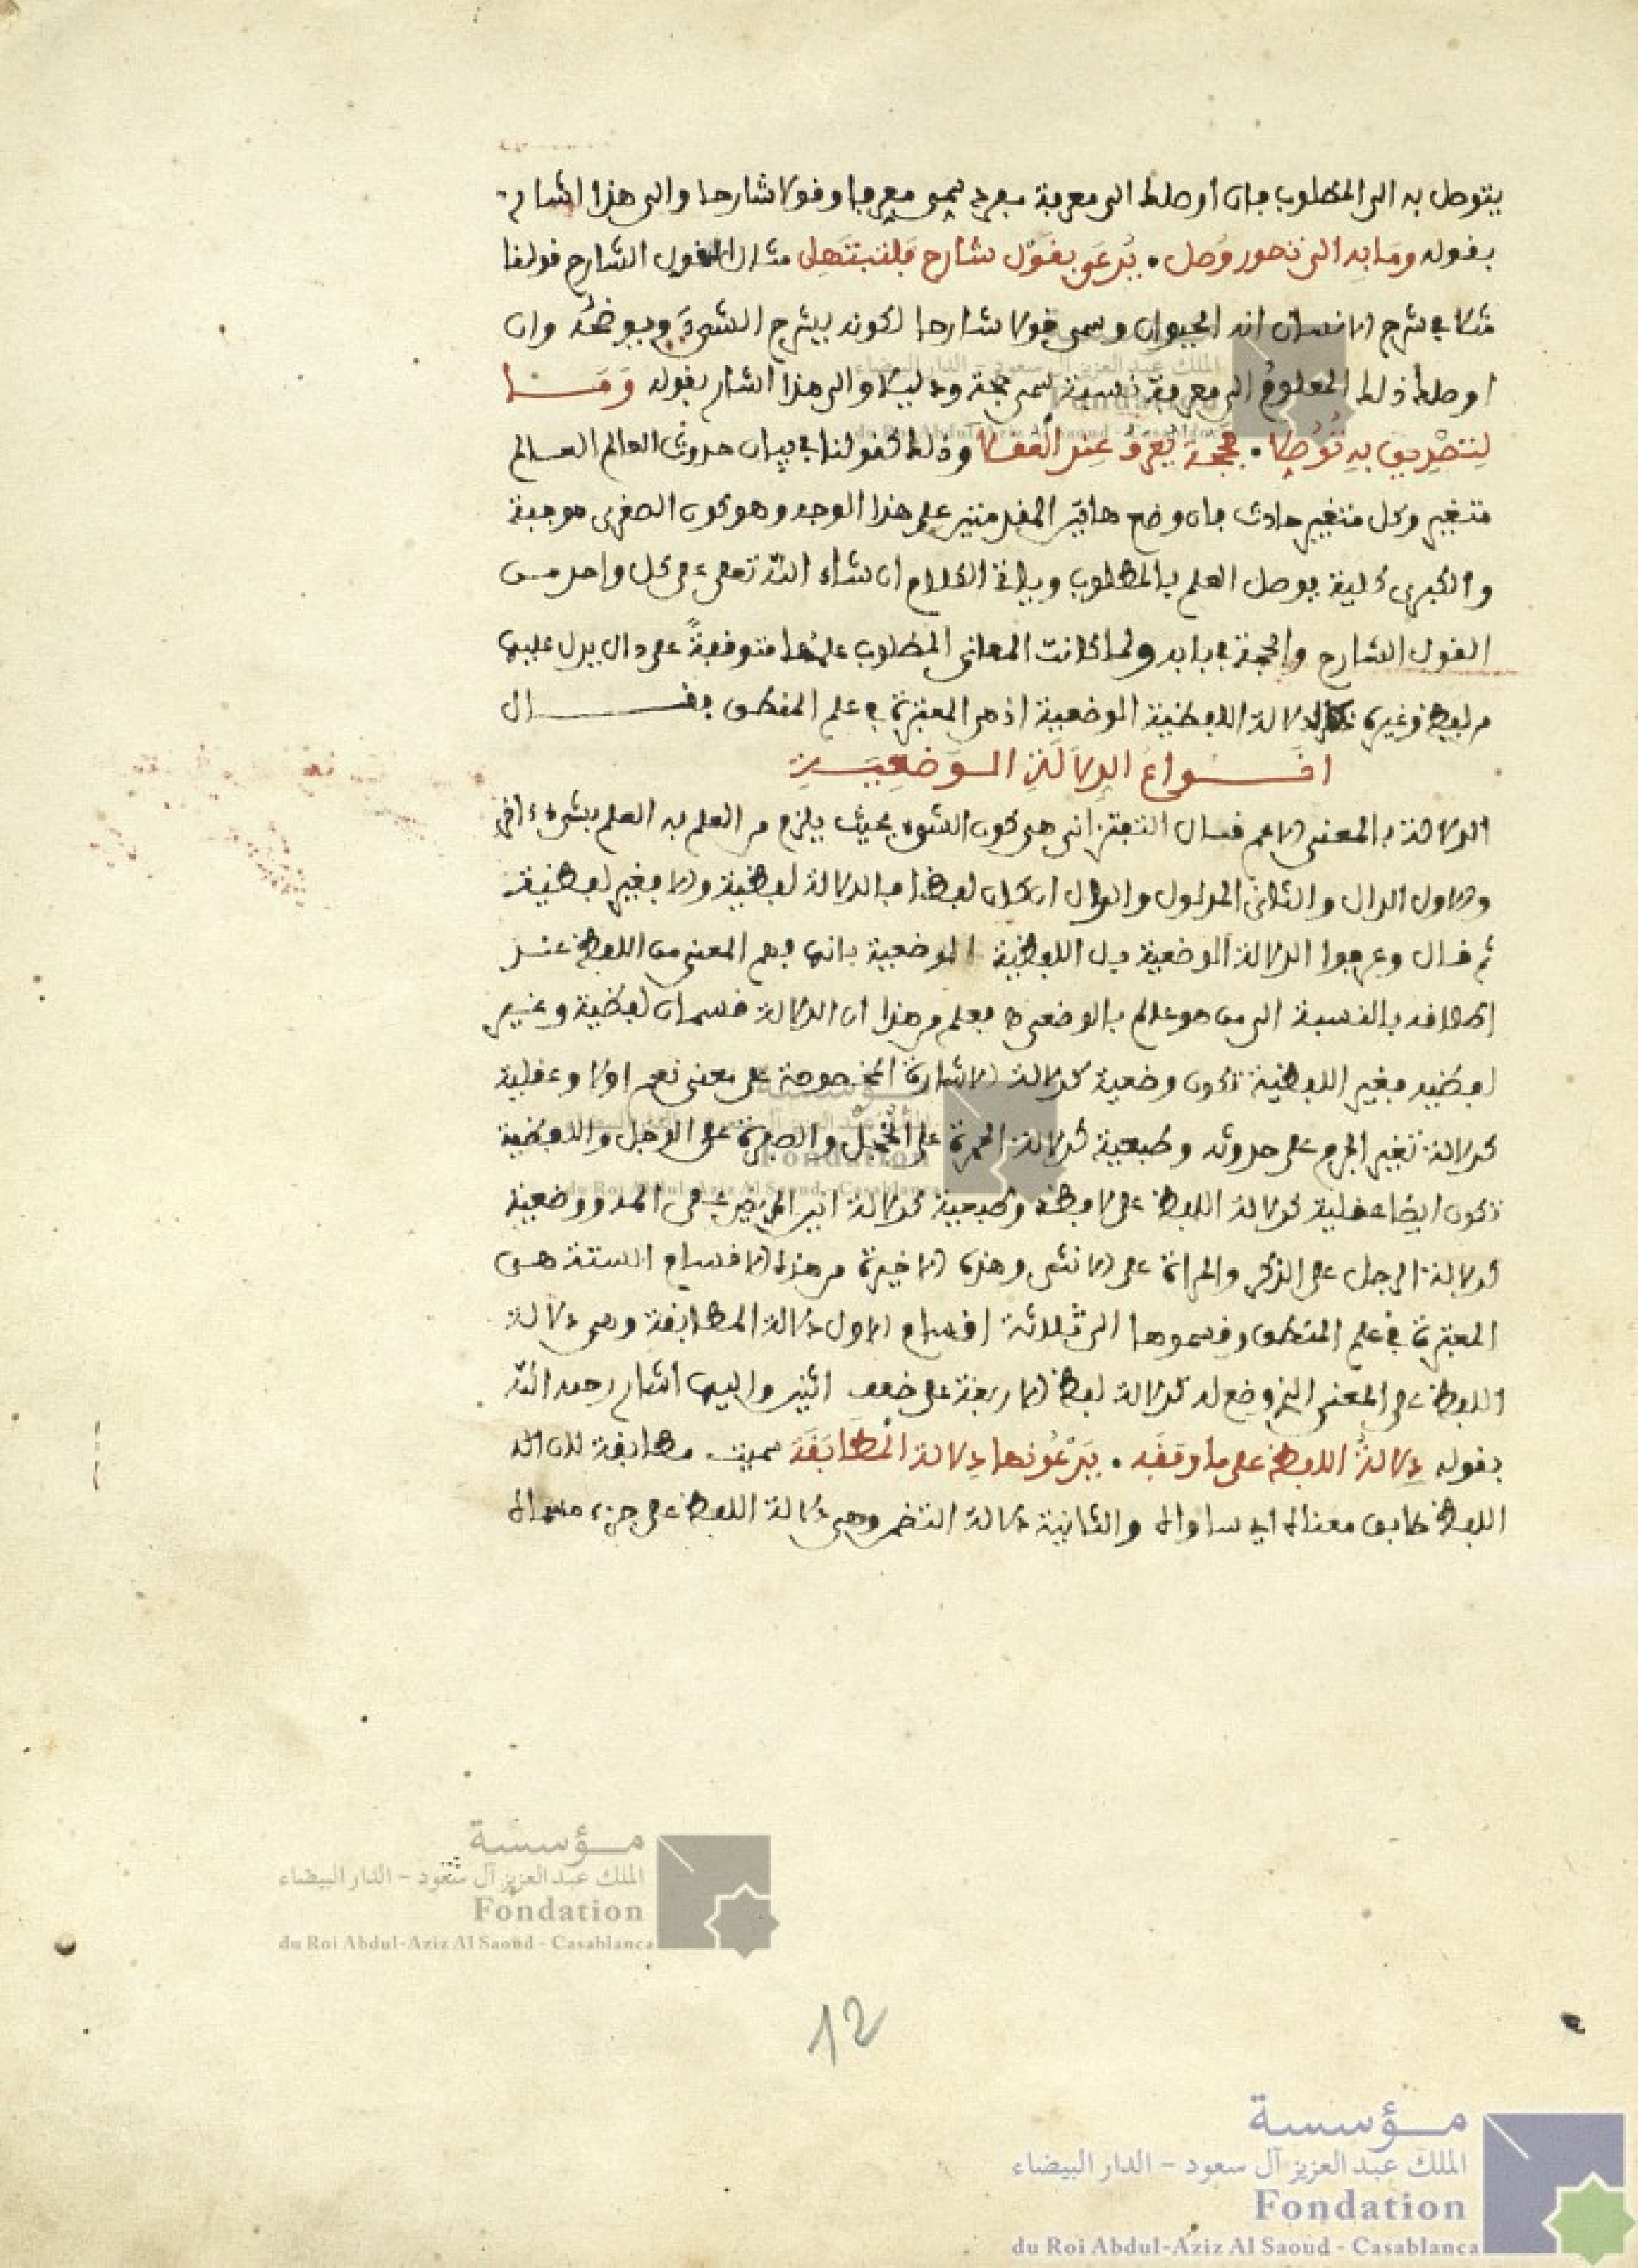 يتوصل به الى المطلوب فان اوصلك الى معرفة مفرد يسمى معرفا وقولا شارحا والى هذا اشار
بقوله وَمَا بِهِ الى تصور وُصِل . يُدْعَى بقَوْل شارح فلتبتَهِل مثال القول الشارح قولنا
مثلا في شرح الانسان انه الحيوان وسمى قولا شارحا لكونه يشرح الشيء ويوضحه وان
اوصلك ذلك المعلوم الى معرفة نسبة يسمى حجة ودليلا والى هذا اشار بقوله وَمَا
لِتَصْدِيق بِهِ تُوُصِّلا . بحُجَّة يُعْرَفُ عِنْدَ الْعُقَلا وذلك كقولنا في بيان حدوث العالم العالم
متغير وكل متغير حادث فان وضع هاتين المقدمتين على هذا الوجه وهو كون الصغرى موجبة
والكبرى كلية يوصل العلم بالمطلوب وياتي الكلام ان شاء الله تعلى على كل واحد من
القول الشارح والحجة في بابه ولما كانت المعاني المطلوب علمها متوقفةً على دال يدل عليها
من لفظ وغيره ذكر الدلالة اللفظية الوضعية اذ هي المعتبرة في علم المنطق فقال
انواعُ الدِلالَةِ الوَضْعِيَةِ
الدلالة بالمعنى الاعم قال التفتزاني هي كون الشيء بحيث يلزم من العلم به العلم بشيء اخر
والاول الدال والثاني المدلول والدال ان كان لفظا فالدلالة لفظية والا فغير لفظية
ثم قال وعرفوا الدلالة الوضعية اللفظية الوضعية بانها فهم المعنى من اللفظ عند
اطلاقه بالنسبة الى من هو عالم بالوضع فعلم من هذا ان الدلالة قسمان لفظية وغير
لفظية فغير اللفظية تكون وضعية كدلالة الاشارة المخصوصة على معنى نعم اولا وعقلية
كدلالة تغير الجرم على حدوثه وطبعية كدلالة الحمرة على الخجل والصفرة على الوجل واللفظية
تكون ايضا عقلية كدلالة اللفظ على لافظه وطبعية كدلالة انين المريض على المه ووضعية
كدلالة الرجل على الذكر والمراة على الانثى وهذه الاخيرة من هذه الاقسام الستة هي
المعتبرة في علم المنطق وقسموها الى ثلاثة اقسام الاول دلالة المطابقة وهي دلالة
اللفظ على المعنى الذي وضع له كدلالة لفظ الاربعة على ضعف اثنين واليها اشار رحمه الله
بقوله دِلالةُ اللفظ على ما وَافَقَه . يَدْعُونها دِلالة الْمُطَابَقَة سميت مطابقة لان الله
اللفظ طابق معناه اي ساواه والثانية دلالة التضمن وهي دلالة اللفظ على جزء مسماه
12
مؤسسة
الملك عبد العزيز آل سعود - الدار البيضاء
Fondation
du Roi Abdul-Aziz Al Saoud - Casablanca